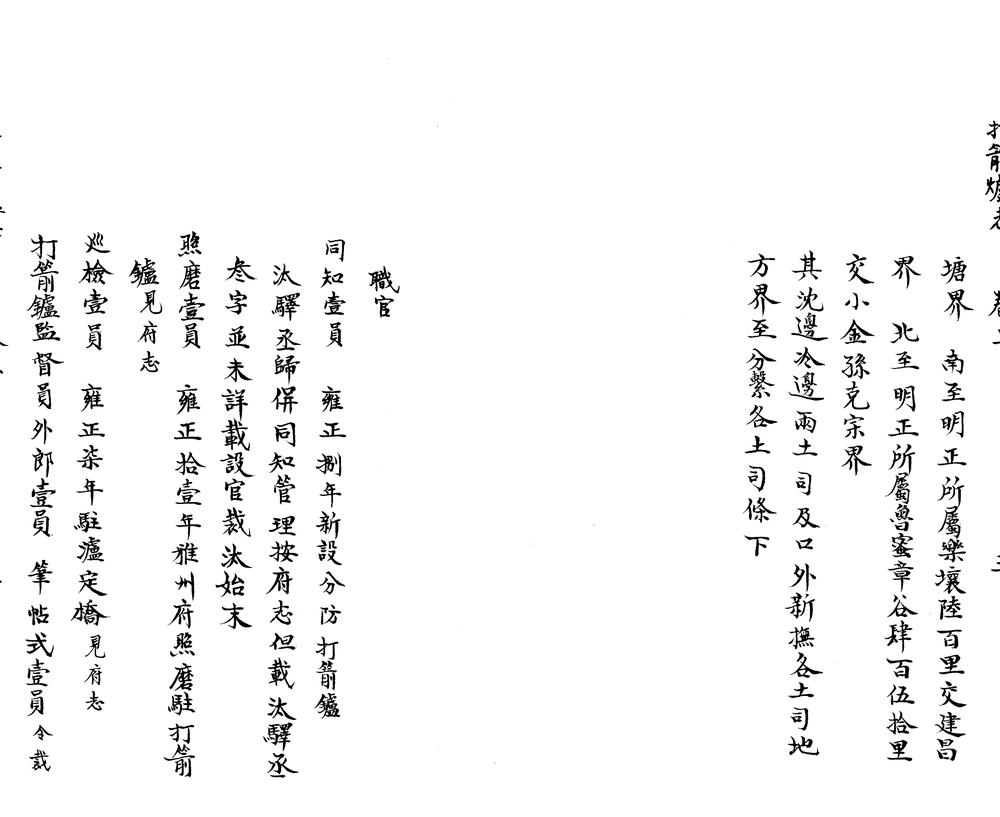 塘界　南至明正所屬樂壤陸百里交建昌
界　北至明正所屬魯蜜章谷肆百伍拾里
交小金孫克宗界
其沈邊冷邊兩土司及口外新撫各土司地
方界至分繫各土司條下
職官
同知壹員　雍正捌年新設分防打箭鑪
汰驛丞歸併同知管理按府志但載汰驛丞
叁字並未詳載設官裁汰始末
照磨壹員　雍正拾壹年雅州府照磨駐打箭
鑪見府志
巡檢壹員　雍正柒年駐瀘定橋見府志
打箭鑪監督員外郎壹員　筆帖式壹員今裁